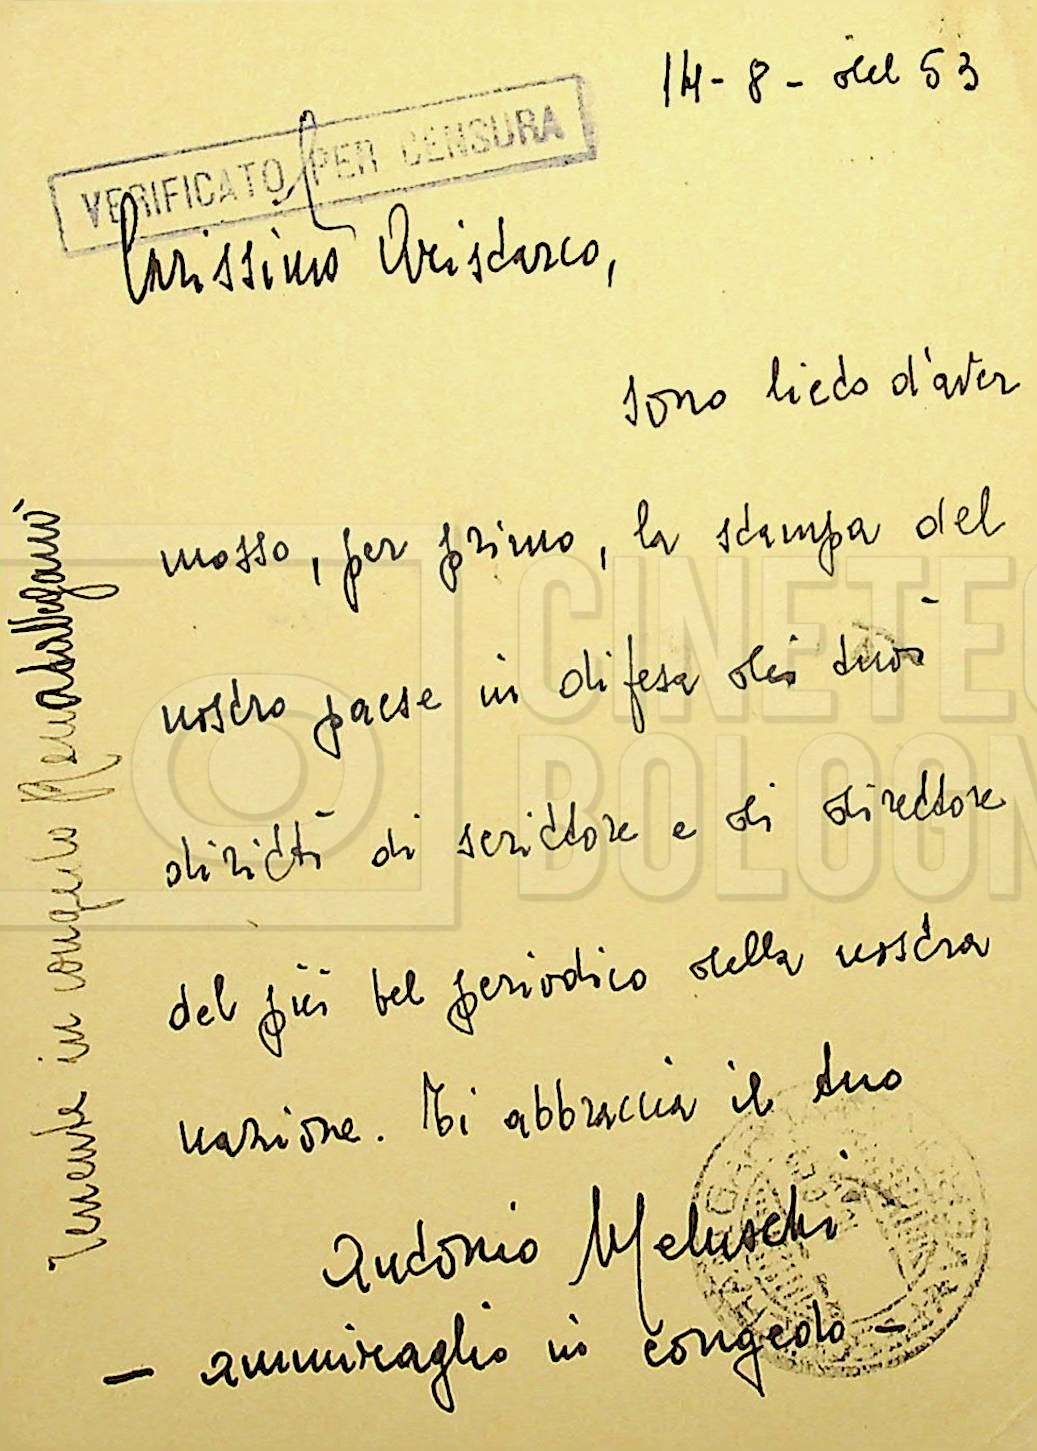 14-8-del 53
VERIFICATO PER CENSURA
Carissimo Aristarco,
sono lieto d'aver
mosso, per primo, la stampa del
nostro paese in difesa dei tuoi
diritti di scrittore e di direttore
del più bel periodico della nostra
nazione. Ti abbraccia il tuo
Antonio Meluschi
- ammiraglio in congedo -
Tenente in congedo Renato
CINETEC
BOLOGN